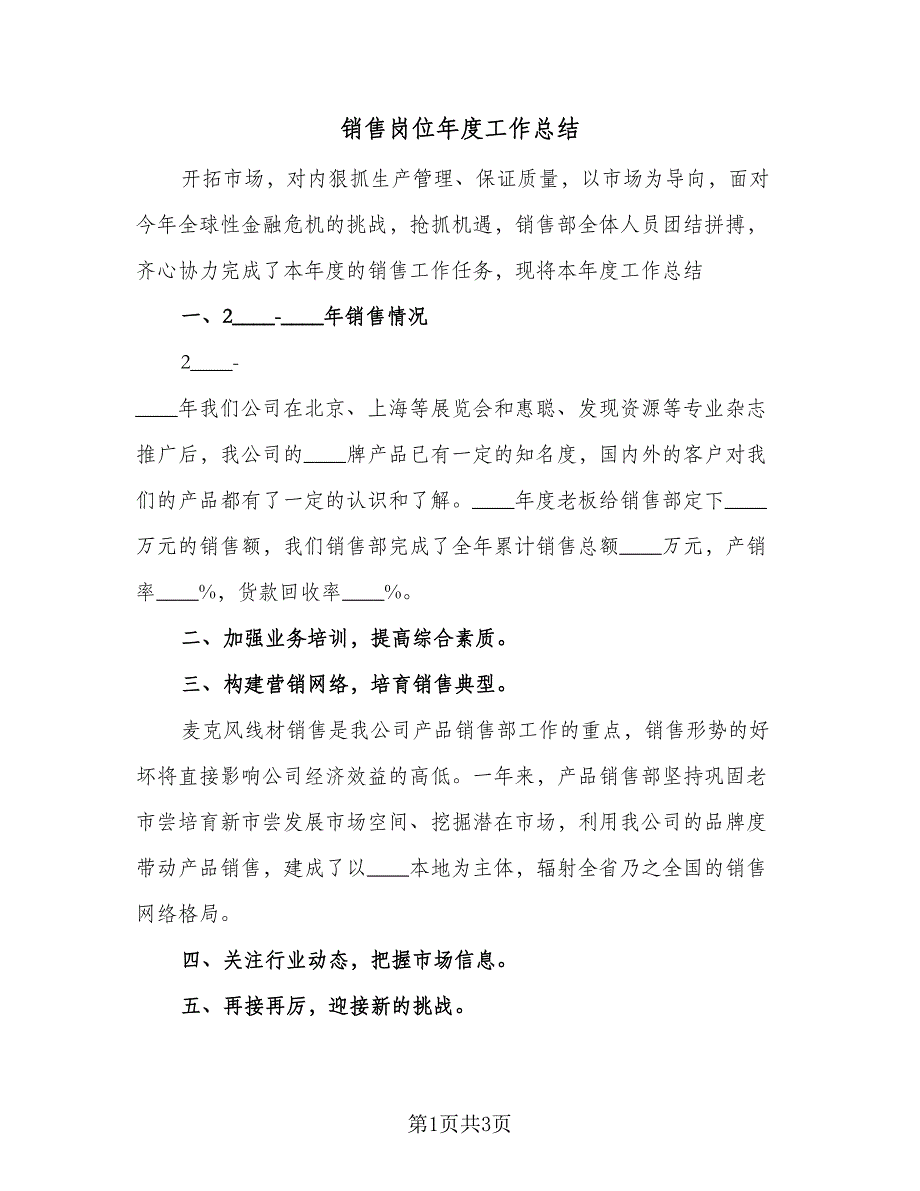 销售岗位年度工作总结
开拓市场，对内狠抓生产管理、保证质量，以市场为导向，面对
今年全球性金融危机的挑战，抢抓机遇，销售部全体人员团结拼搏，
齐心协力完成了本年度的销售工作任务，现将本年度工作总结
一、2____-____年销售情况
2____-
____年我们公司在北京、上海等展览会和惠聪、发现资源等专业杂志
推广后，我公司的____牌产品已有一定的知名度，国内外的客户对我
们的产品都有了一定的认识和了解。____年度老板给销售部定下____
万元的销售额，我们销售部完成了全年累计销售总额____万元，产销
率____%，货款回收率____%。
二、加强业务培训，提高综合素质。
三、构建营销网络，培育销售典型。
麦克风线材销售是我公司产品销售部工作的重点，销售形势的好
坏将直接影响公司经济效益的高低。一年来，产品销售部坚持巩固老
市尝培育新市尝发展市场空间、挖掘潜在市场，利用我公司的品牌度
带动产品销售，建成了以____本地为主体，辐射全省乃之全国的销售
网络格局。
四、关注行业动态，把握市场信息。
五、再接再厉，迎接新的挑战。
第1页共3页